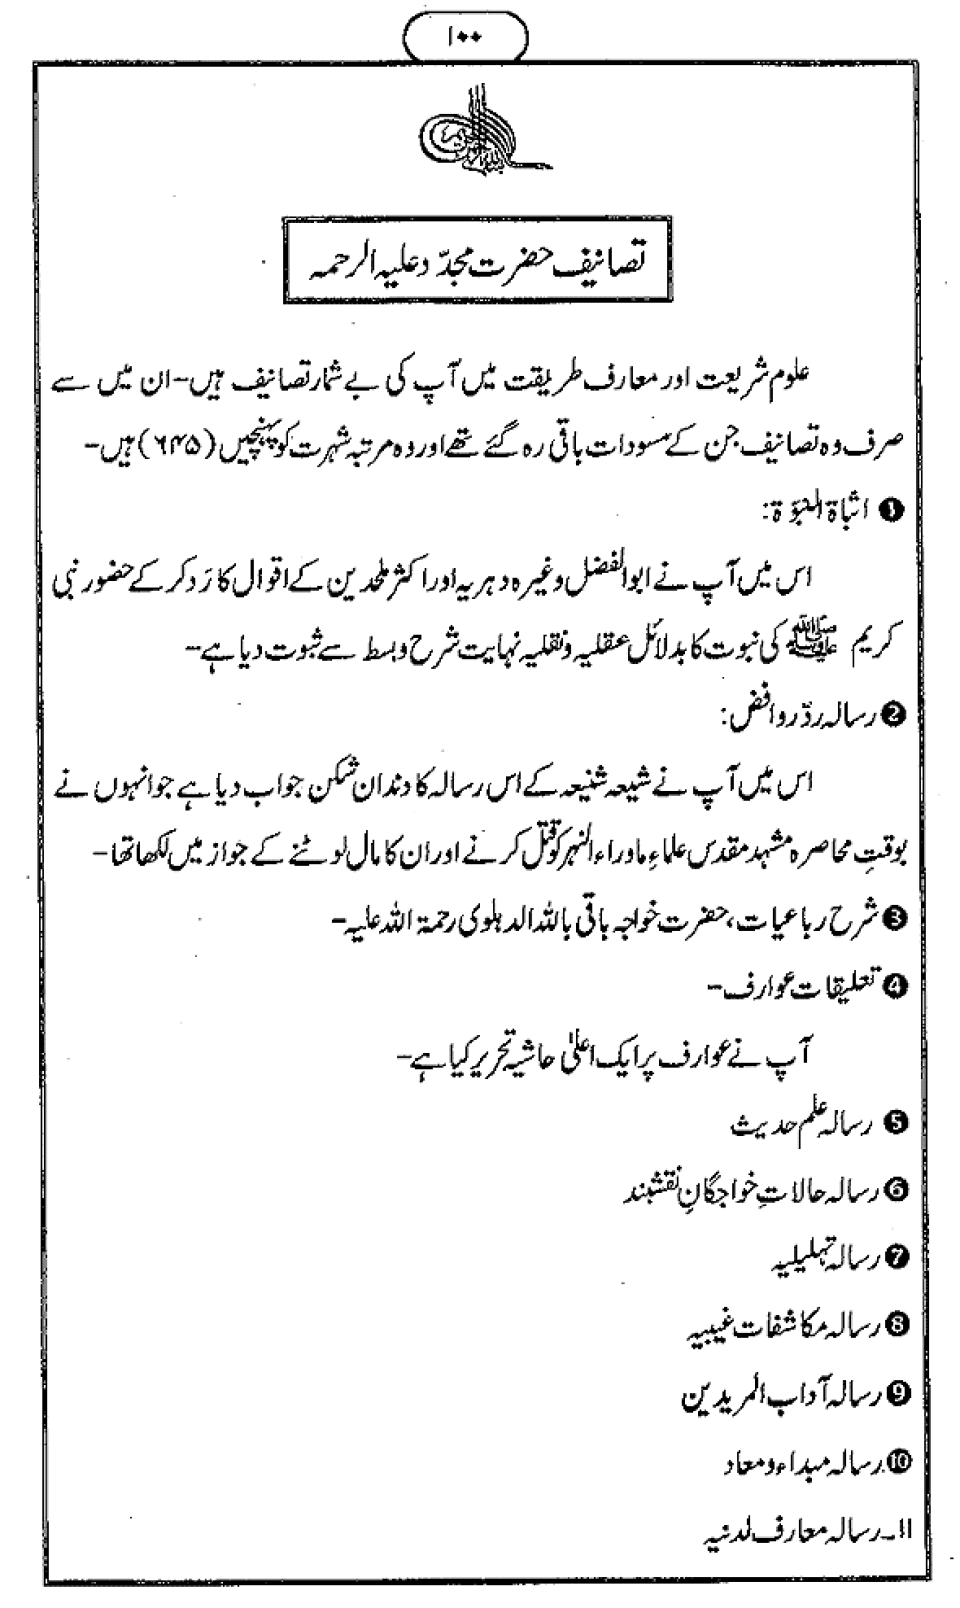 ۱۰۰
تصانیف حضرت مجدّد علیہ الرحمہ
علوم شریعت اور معارف طریقت میں آپ کی بے شمار تصانیف ہیں-ان میں سے
صرف وہ تصانیف جن کے مسودات باقی رہ گئے تھے اور وہ مرتبہ شہرت کو پہنچیں (۶۴۵) ہیں-
❶ اثباۃ النبوّۃ:
اس میں آپ نے ابوالفضل وغیرہ دہریہ اور اکثر ملحدین کے اقوال کا رَد کر کے حضور نبی
کریم ﷺ کی نبوت کا بدلائل عقلیہ و نقلیہ نہایت شرح و بسط سے ثبوت دیا ہے-
❷ رسالہ ردّ روافض:
اس میں آپ نے شیعہ شنیعہ کے اس رسالہ کا دندان شکن جواب دیا ہے جو انہوں نے
بوقتِ محاصرہ مشہد مقدس علماءِ ماوراء النہر کو قتل کرنے اور ان کا مال لوٹنے کے جواز میں لکھا تھا-
❸ شرح رباعیات، حضرت خواجہ باقی باللہ الدہلوی رحمۃ اللہ علیہ-
❹ تعلیقات عوارف-
آپ نے عوارف پر ایک اعلیٰ حاشیہ تحریر کیا ہے-
❺ رسالہ علم حدیث
❻ رسالہ حالاتِ خواجگانِ نقشبند
❼ رسالہ تہلیلیہ
❽ رسالہ مکاشفات غیبیہ
❾ رسالہ آداب المریدین
❿ رسالہ مبداء و معاد
۱۱-رسالہ معارف لدنیہ